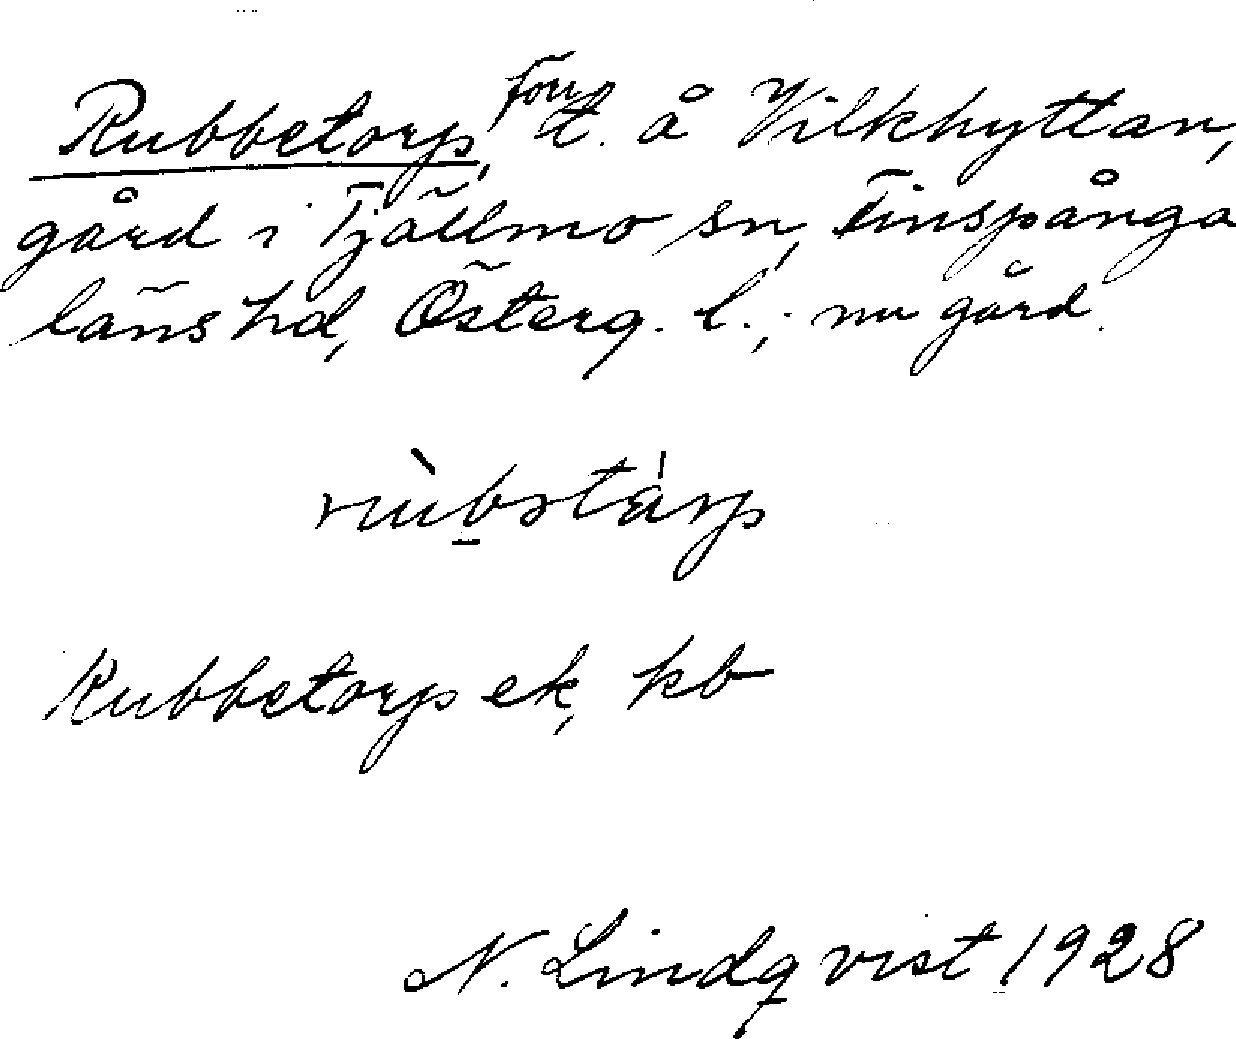 Rubbetorp, förr t. å Vilkhyttan,
gård i Tjällmo sn, Finspånga
läns hd, Österg. l.; nu gård.
Rubbetorp ek, kb
N. Lindqvist 1928